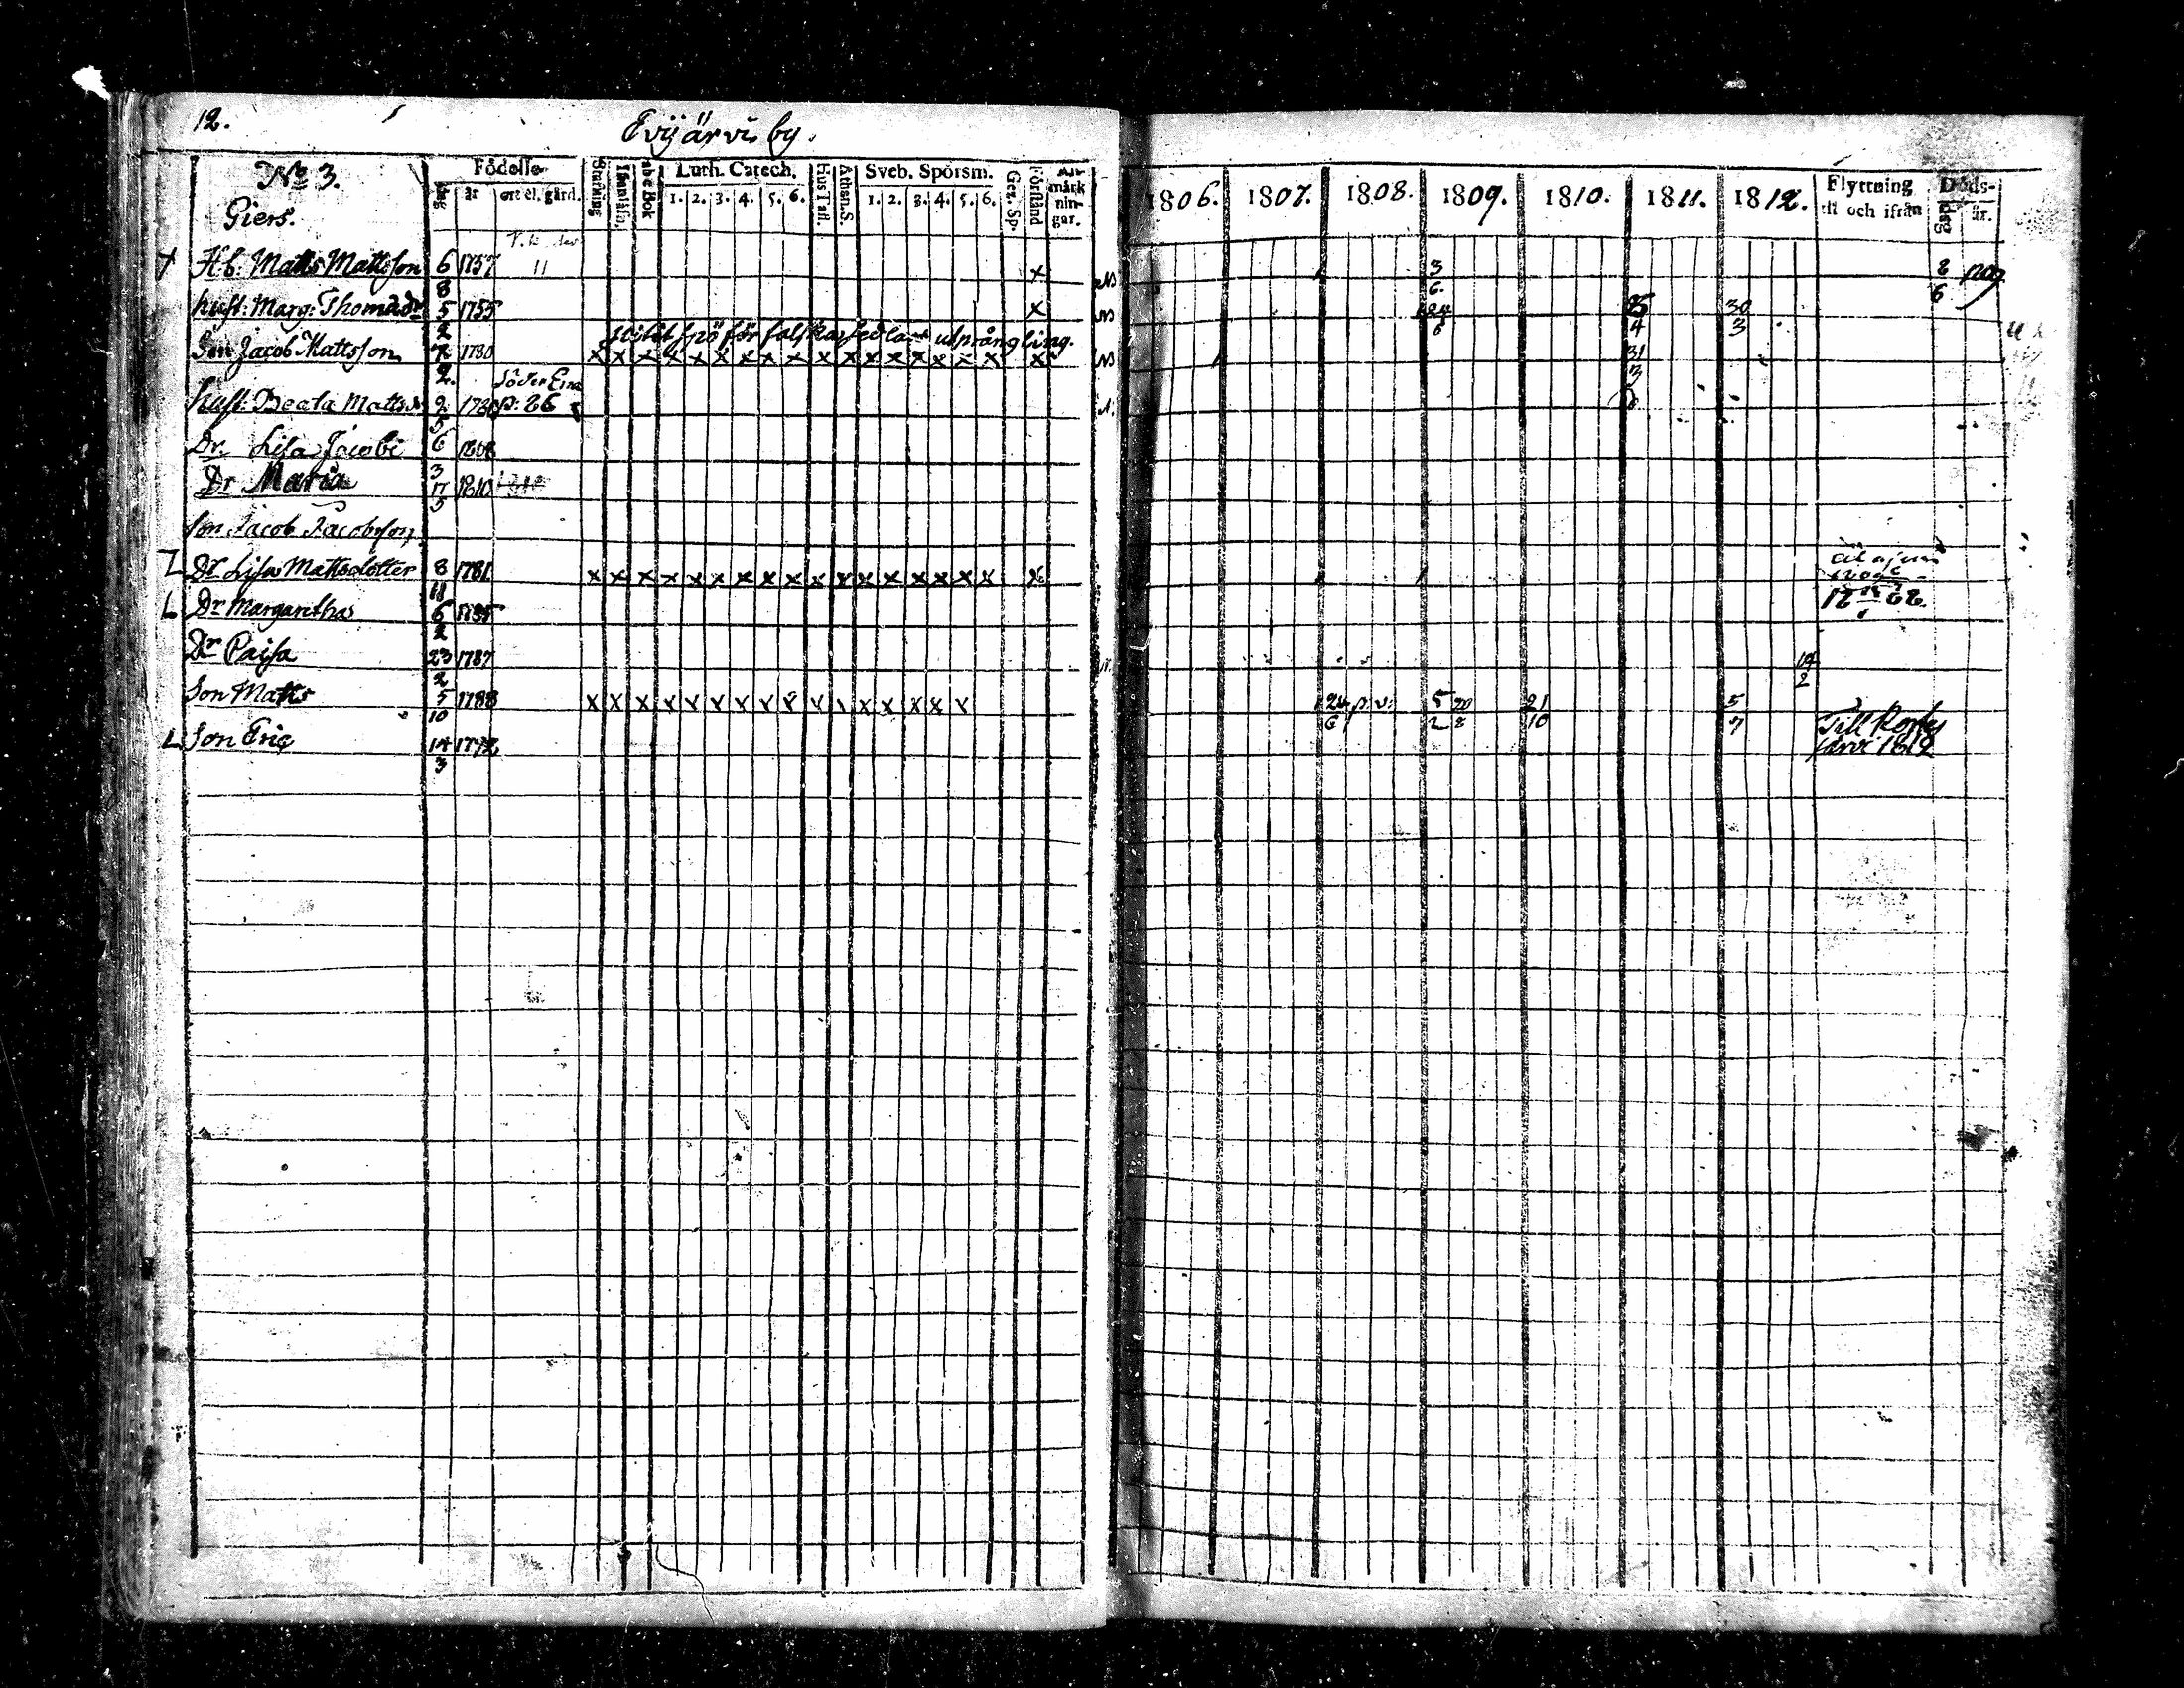 12.
Evijärvi by.
No 3.
Giers.
Födelse-
dag
år
ort el. gård.
abc Bok
Luth. Catech.
1. 2. 3. 4. 5. 6.
Hus Tafl.
Athan. S.
Sveb. Spörsm.
1. 2. 3. 4. 5. 6.
Gez. Sp.
Förstånd
An-
märk
nin-
gar.
1806. 1807. 1808. 1809. 1810. 1811. 1812.
Flyttning
till och ifrån
Döds-
dag
år.
+ Hb. Matts Mattsson 6 8 1757 11 x 3 6. 2 6 1809
hust: Marg: Thomædr 5 2 1755 x 24 6 25 4 30 3
plikt spö för falska sedlars utprångling.
Son Jacob Mattsson 7 2. 1780 x x x x x x x x x x x x x x x x x x 31 3
hust: Beata Mattsdr 2 5 p: 26
Dr. Lisa Jacobi 6 3 1808
Dr Maria 17 5 1810
Son Jacob Jacobsson
L Dr Lisa Mattsdotter 8 11 1781 x x x x x x x x x x x x x x x x x x
L Dr Margaretha 6 2 1785
Dr Caisa 23 2 1787 19 2
Son Matts 5 10 1788 x x x x x x x x x x x x x x x x 24 6 p. v: 5 2 20 8 21 10 5 7
L Son Eric 14 3 1792 Till Kortes
järvi 1812